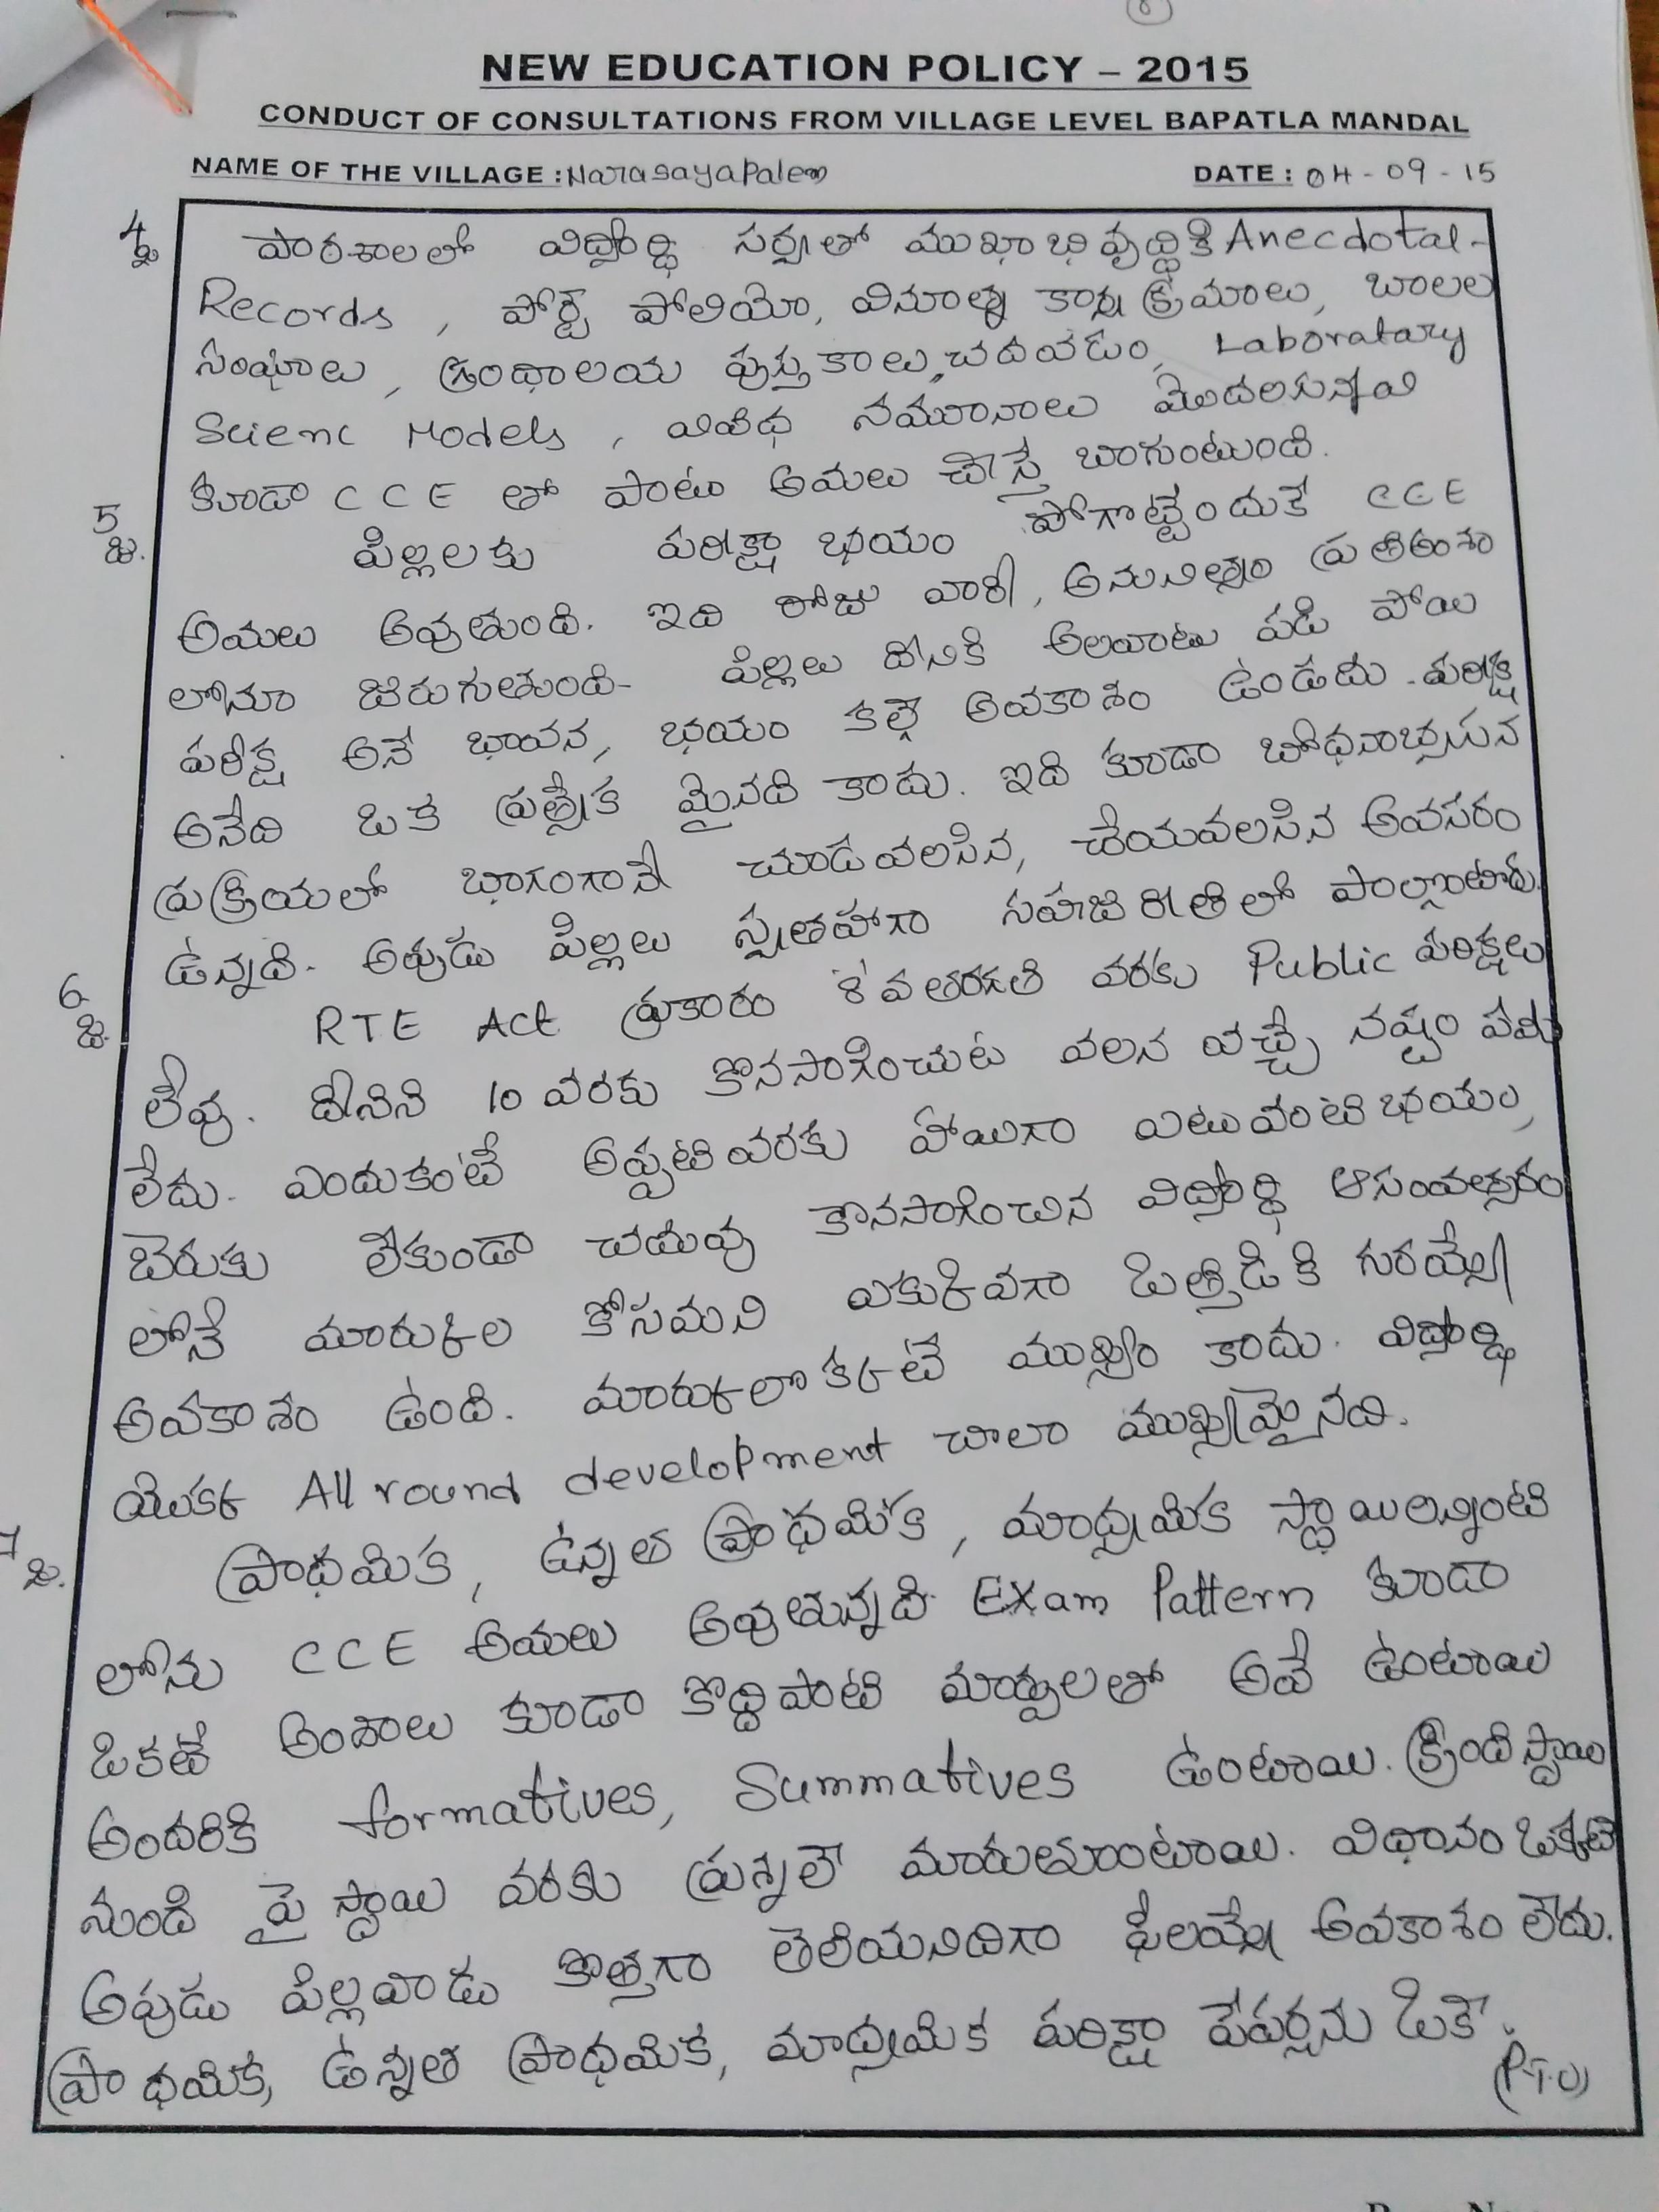 NEW EDUCATION POLICY – 2015
CONDUCT OF CONSULTATIONS FROM VILLAGE LEVEL BAPATLA MANDAL
NAME OF THE VILLAGE : Narasayapalem DATE : 04-09-15
4 జ పాఠశాలలో విద్యార్థి సర్వతో ముఖాభివృద్ధికి Anecdotal-
Records, పోర్ట్ పోలియో, వినూత్న కార్యక్రమాలు, బాలల
సంఘాలు, గ్రంథాలయ పుస్తకాలు చదవడం, Laboratary
Scienc Models, వివిధ నమూనాలు మొదలగున్నవి
కూడా CCE తో పాటు అమలు చేస్తే బాగుంటుంది.
5 జ. పిల్లలకు పరీక్షా భయం పోగొట్టేందుకే CCE
అమలు అవుతుంది. ఇది రోజు వారీ, అనునిత్యం ప్రతిఅంశం
లోనూ జరుగుతుంది- పిల్లలు దీనికి అలవాటు పడి పోయి
పరీక్ష అనే భావన, భయం కల్గే అవకాశం ఉండదు. పరీక్ష
అనేది ఒక ప్రత్యేక మైనది కాదు. ఇది కూడా బోధనాభ్యసన
ప్రక్రియలో భాగంగానే చూడవలసిన, చేయవలసిన అవసరం
ఉన్నది. అప్పుడు పిల్లలు స్వతహాగా సహజ రీతిలో పాల్గొంటారు.
6 జ. RTE Act ప్రకారం 8వ తరగతి వరకు Public పరీక్షలు
లేవు. దీనిని 10 వరకు కొనసాగించుట వలన వచ్చే నష్టం ఏమీ
లేదు. ఎందుకంటే అప్పటివరకు హాయిగా ఎటువంటి భయం,
బెరుకు లేకుండా చదువు కొనసాగించిన విద్యార్థి ఆసంవత్సరం
లోనే మారుకుల కోసమని ఎకుకివగా ఒత్తిడికి గురయ్యే
అవకాశం ఉంది. మారుకులొకకటే ముఖ్యం కాదు. విద్యార్థి
యొకక All round development చాలా ముఖ్యమైనది.
7 జ. ప్రాధమిక, ఉన్నత ప్రాధమిక, మాధ్యమిక స్థాయిలన్నింటి
లోను CCE అమలు అవుతున్నది. Exam Pattern కూడా
ఒకటే అంశాలు కూడా కొద్దిపాటి మార్పులతో అవే ఉంటాయి
అందరికి formatives, Summatives ఉంటాయి. క్రింది స్థాయి
నుండి పై స్థాయి వరకు ప్రశ్నలే మారుతుంటాయి. విధానం ఒక్కటే
అపుడు పిల్లవాడు కొత్తగా తెలియనిదిగా ఫీలయ్యే అవకాశం లేదు.
ప్రాధమిక, ఉన్నత ప్రాధమిక, మాధ్యమిక పరీక్షా పేపర్లను ఒకే.
(P.T.O)